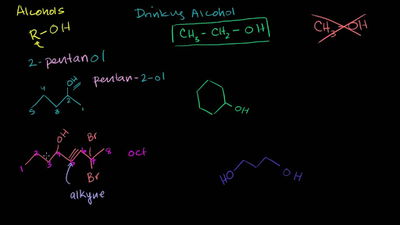 Alcohols
Drinking Alcohol
R-OH
CH₃-CH₂-OH
CH₃-OH
2-pentanol
pentan-2-ol
OH
5 4 3 2 1
OH
OH
Br
1 2 3 4 5 6 7 8
oct
Br
alkyne
HO
OH